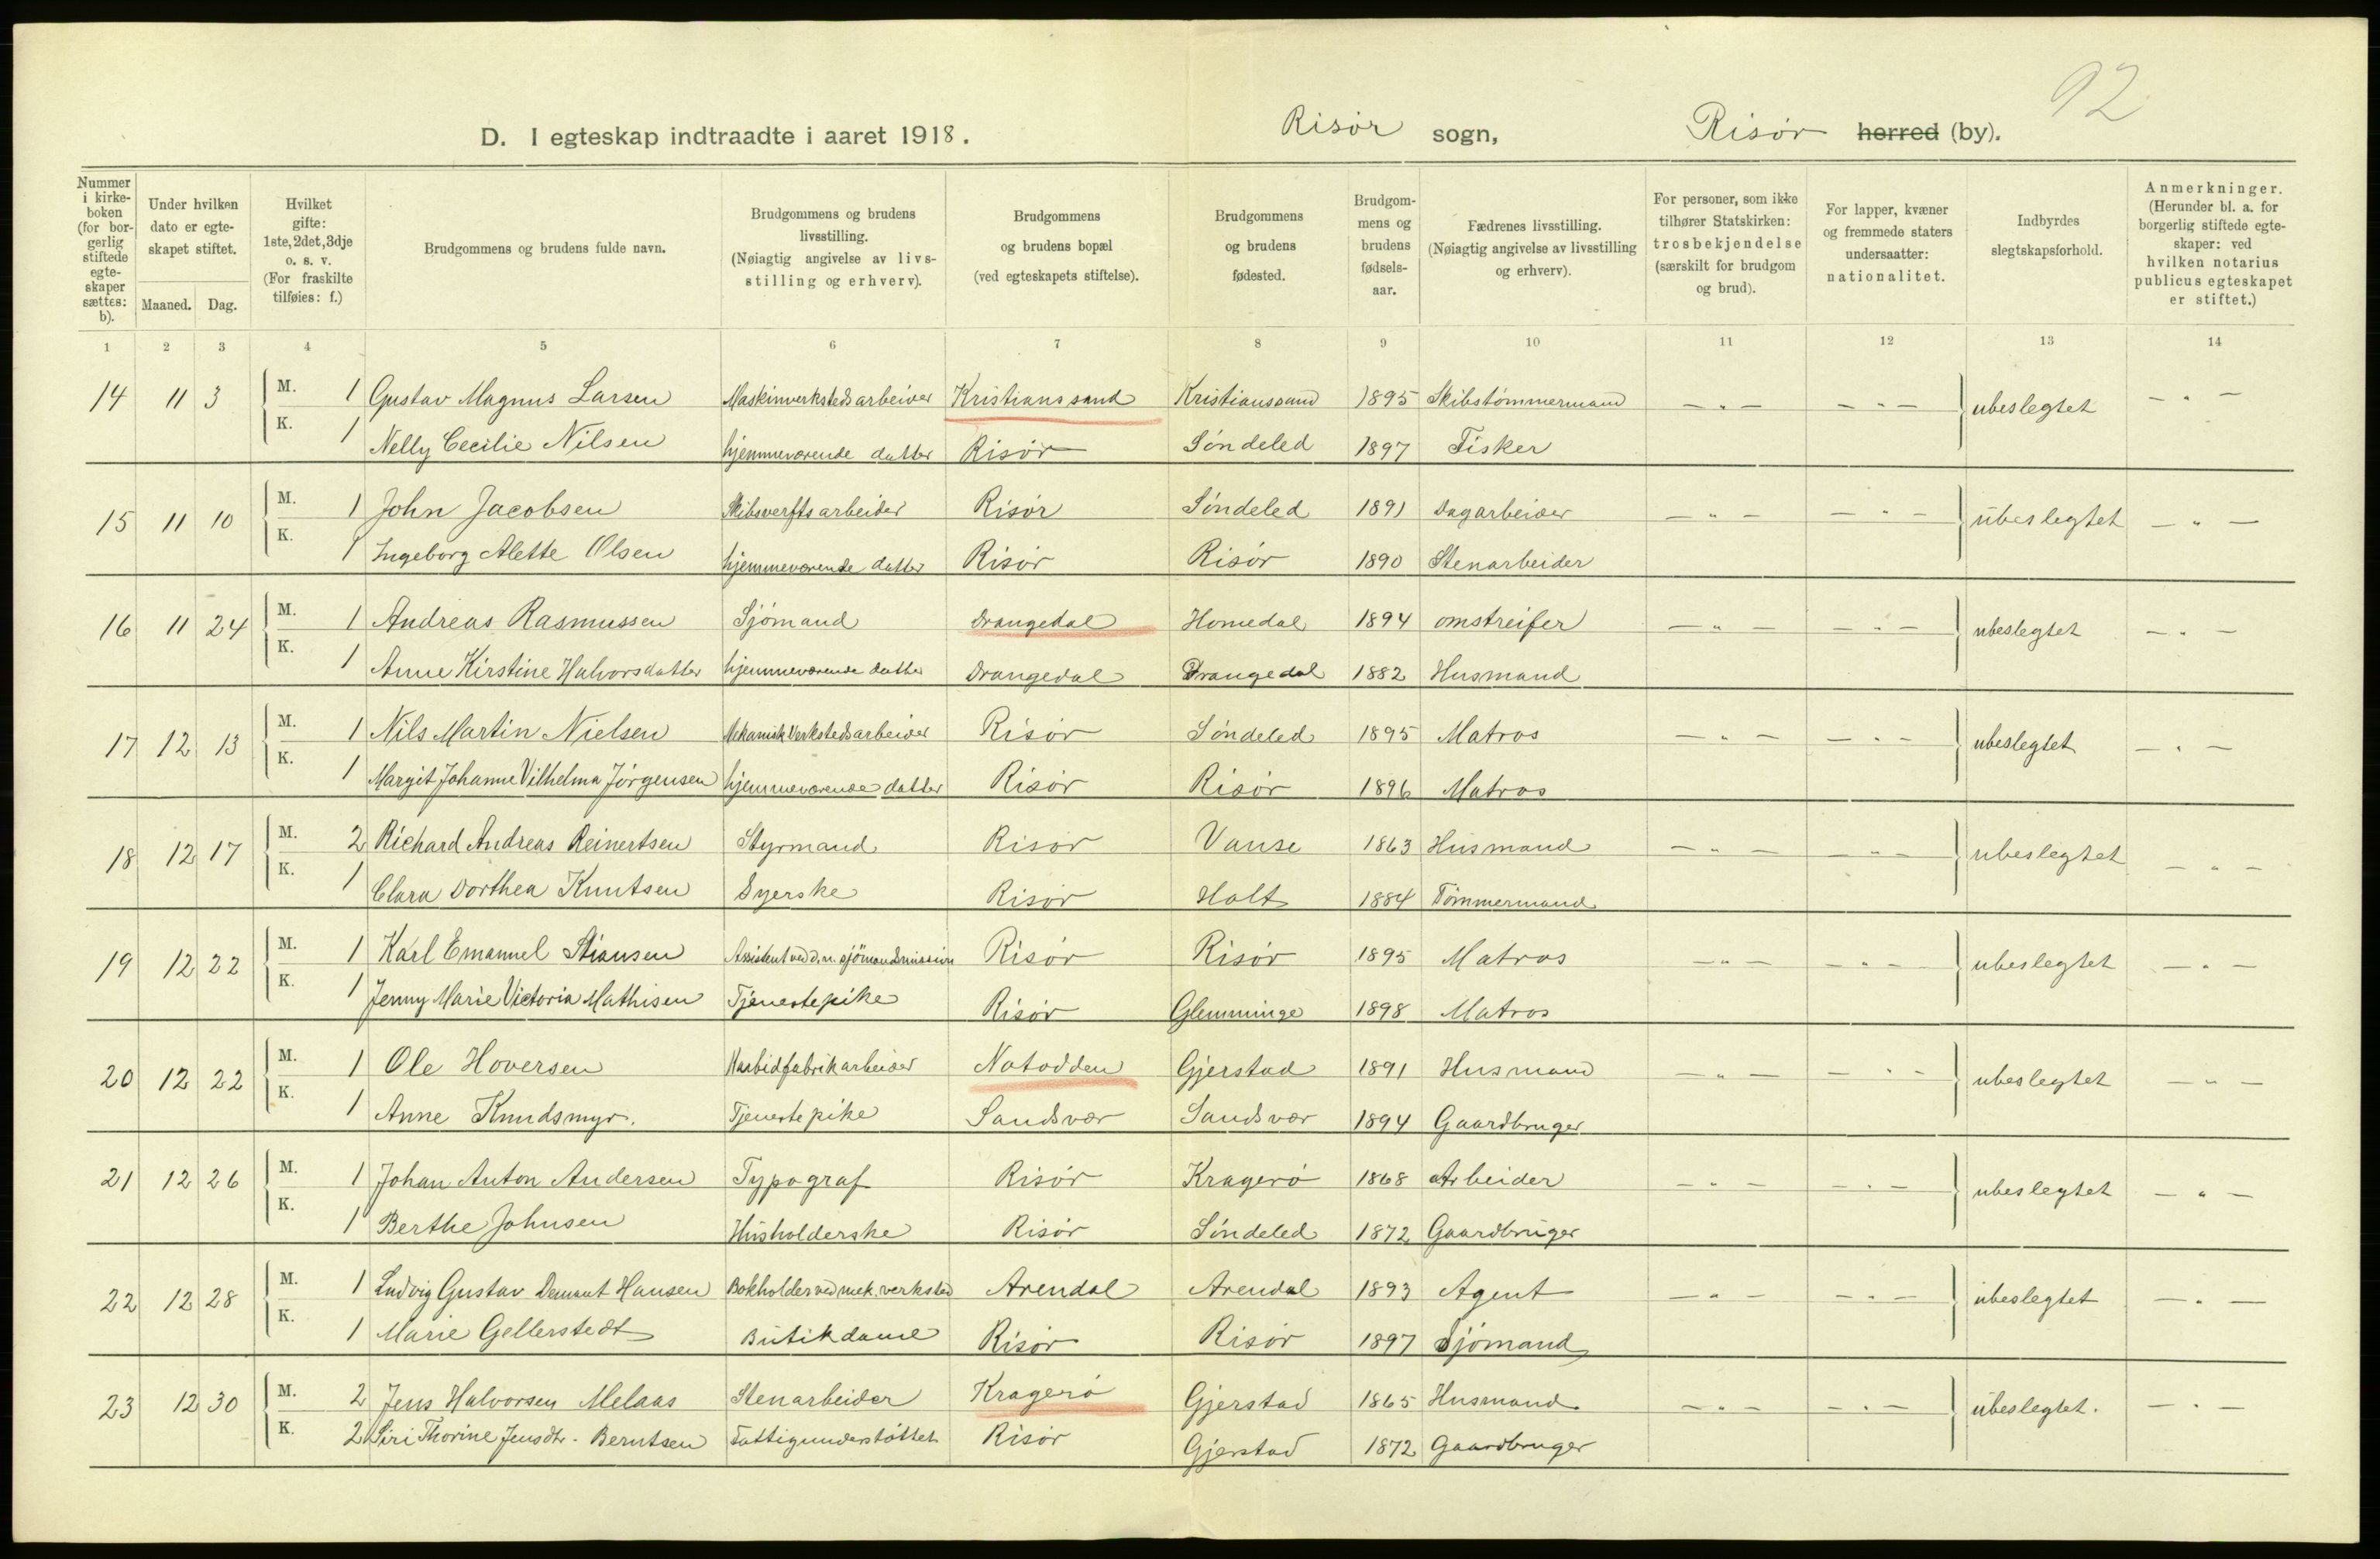 92
D. I egteskap indtraadte i aaret 1918. Risør sogn, Risør herred (by).
Nummer i kirke-boken (for bor-gerlig stiftede egte-skaper sættes: b).
Under hvilken dato er egte-skapet stiftet.
Maaned. Dag.
Hvilket gifte: 1ste, 2det, 3dje o. s. v. (For fraskilte tilføies: f.)
Brudgommens og brudens fulde navn.
Brudgommens og brudens livsstilling. (Nøiagtig angivelse av livs-stilling og erhverv).
Brudgommens og brudens bopæl (ved egteskapets stiftelse).
Brudgommens og brudens fødested.
Brudgom-mens og brudens fødsels-aar.
Fædrenes livsstilling. (Nøiagtig angivelse av livsstilling og erhverv).
For personer, som ikke tilhører Statskirken: trosbekjendelse (særskilt for brudgom og brud).
For lapper, kvæner og fremmede staters undersaatter: nationalitet.
Indbyrdes slegtskapsforhold.
Anmerkninger. (Herunder bl. a. for borgerlig stiftede egte-skaper: ved hvilken notarius publicus egteskapet er stiftet.)
1 2 3 4 5 6 7 8 9 10 11 12 13 14
14 11 3 M. 1 Gustav Magnus Larsen Maskinverkstedsarbeider Kristianssand Kristianssand 1895 Skibstømmermand — " — — " — ubeslegtet — " —
K. 1 Nelly Cecilie Nilsen hjemmeværende datter Risør Søndeled 1897 Fisker
15 11 10 M. 1 John Jacobsen Skibsverftsarbeider Risør Søndeled 1891 Dagarbeider — " — — " — ubeslegtet — " —
K. 1 Ingeborg Alette Olsen hjemmeværende datter Risør Risør 1890 Stenarbeider
16 11 24 M. 1 Andreas Rasmussen Sjømand Drangedal Homedal 1894 omstreifer — " — — " — ubeslegtet — " —
K. 1 Anne Kirstine Halvorsdatter hjemmeværende datter Drangedal Drangedal 1882 Husmand
17 12 13 M. 1 Nils Martin Nielsen Mekanisk Verkstedsarbeider Risør Søndeled 1895 Matros — " — — " — ubeslegtet — " —
K. 1 Margit Johanne Vilhelma Jørgensen hjemmeværende datter Risør Risør 1896 Matros
18 12 17 M. 2 Richard Andreas Reinertsen Styrmand Risør Vanse 1863 Husmand — " — — " — ubeslegtet — " —
K. 1 Clara Dorthea Knutsen Syerske Risør Holt 1884 Tømmermand
19 12 22 M. 1 Karl Emanuel Stiansen Assistent ved d. n. sjömandsmission Risør Risør 1895 Matros — " — — " — ubeslegtet — " —
K. 1 Jenny Marie Victoria Mathisen Tjenestepike Risør Glemminge 1898 Matros
20 12 22 M. 1 Ole Hoversen Karbidfabrikarbeider Notodden Gjerstad 1891 Husmand — " — — " — ubeslegtet — " —
K. 1 Anne Knudsmyr. Tjenestepike Sandsvær Sandsvær 1894 Gaardbruger
21 12 26 M. 1 Johan Anton Andersen Typograf Risør Kragerø 1868 Arbeider — " — — " — ubeslegtet — " —
K. 1 Berthe Johnsen Husholderske Risør Søndeled 1872 Gaardbruger
22 12 28 M. 1 Ludvig Gustav Demant Hansen Bokholder ved mek. verksted Arendal Arendal 1893 Agent — " — — " — ubeslegtet — " —
K. 1 Marie Gellerstedt Butikdame Risør Risør 1897 Sjömand
23 12 30 M. 2 Jens Halvorsen Melaas Stenarbeider Kragerø Gjerstad 1865 Husmand — " — — " — ubeslegtet. — " —
K. 2 Siri Thorine Jensdtr. Berntsen Fattigunderstøttet Risør Gjerstad 1872 Gaardbruger